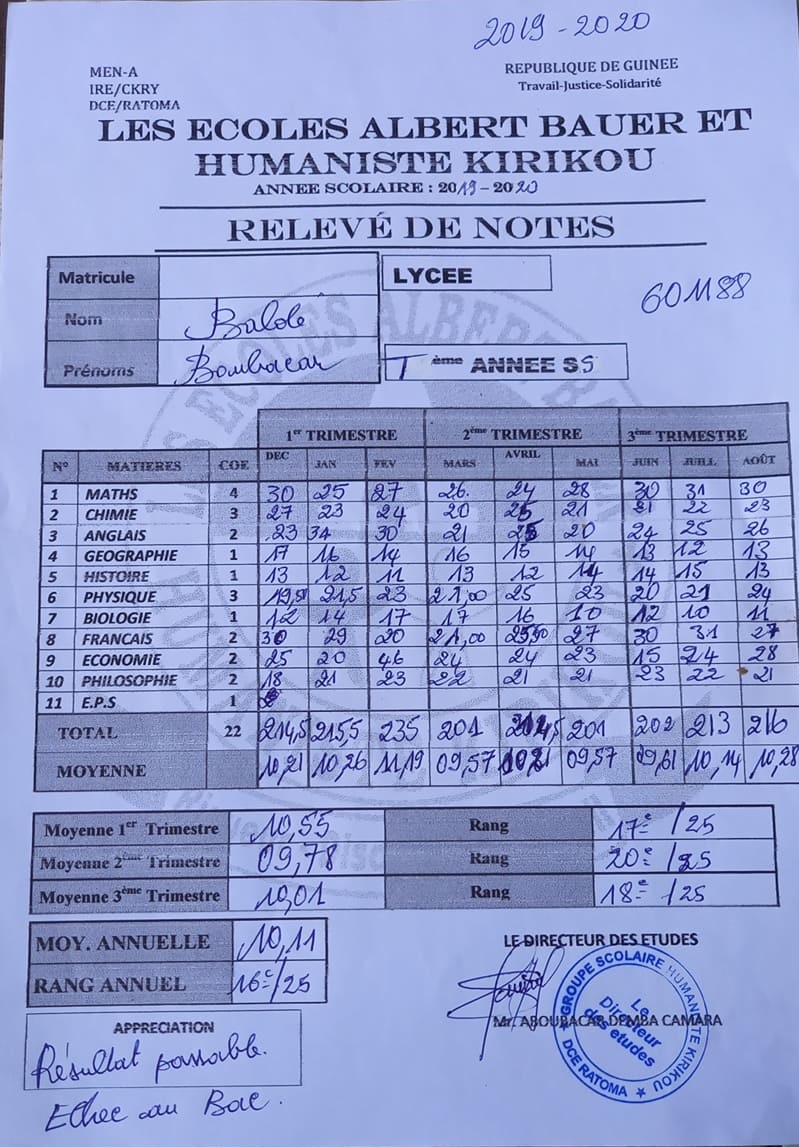 2019-2020
MEN-A
IRE/CKRY
DCE/RATOMA
REPUBLIQUE DE GUINEE
Travail-Justice-Solidarité
LES ECOLES ALBERT BAUER ET
HUMANISTE KIRIKOU
ANNEE SCOLAIRE : 2019-2020
RELEVÉ DE NOTES
Matricule
LYCEE
601188
Nom Baldé
Prénoms Boubacar
T ème ANNEE SS
1er TRIMESTRE 2ème TRIMESTRE 3ème TRIMESTRE
N° MATIERES COE DEC JAN FEV MARS AVRIL MAI JUIN JUILL AOÛT
1 MATHS 4 30 25 27 26 24 28 30 31 30
2 CHIMIE 3 27 23 24 20 25 21 21 22 23
3 ANGLAIS 2 23 34 30 21 25 20 24 25 26
4 GEOGRAPHIE 1 17 16 14 16 15 14 13 12 13
5 HISTOIRE 1 13 12 11 13 12 14 14 15 13
6 PHYSIQUE 3 19,5 21,5 23 21,00 25 23 20 21 24
7 BIOLOGIE 1 12 14 17 17 16 10 12 10 11
8 FRANCAIS 2 30 29 20 21,00 25,50 27 30 31 27
9 ECONOMIE 2 25 20 46 24 24 23 15 24 28
10 PHILOSOPHIE 2 18 21 23 22 21 21 23 22 21
11 E.P.S 1
TOTAL 22 214,5 215,5 235 201 201 202 213 216
MOYENNE 10,21 10,26 11,19 09,57 09,57 09,61 10,14 10,28
Moyenne 1er Trimestre 10,55 Rang 17e/25
Moyenne 2ème Trimestre 09,78 Rang 20e/25
Moyenne 3ème Trimestre 10,01 Rang 18e/25
MOY. ANNUELLE 10,11
RANG ANNUEL 16e/25
LE DIRECTEUR DES ETUDES
GROUPE SCOLAIRE HUMANISTE KIRIKOU
Le Directeur des etudes
DCE RATOMA
Mr. ABOUBACAR DEMBA CAMARA
APPRECIATION
Résultat passable.
Echec au Bac.